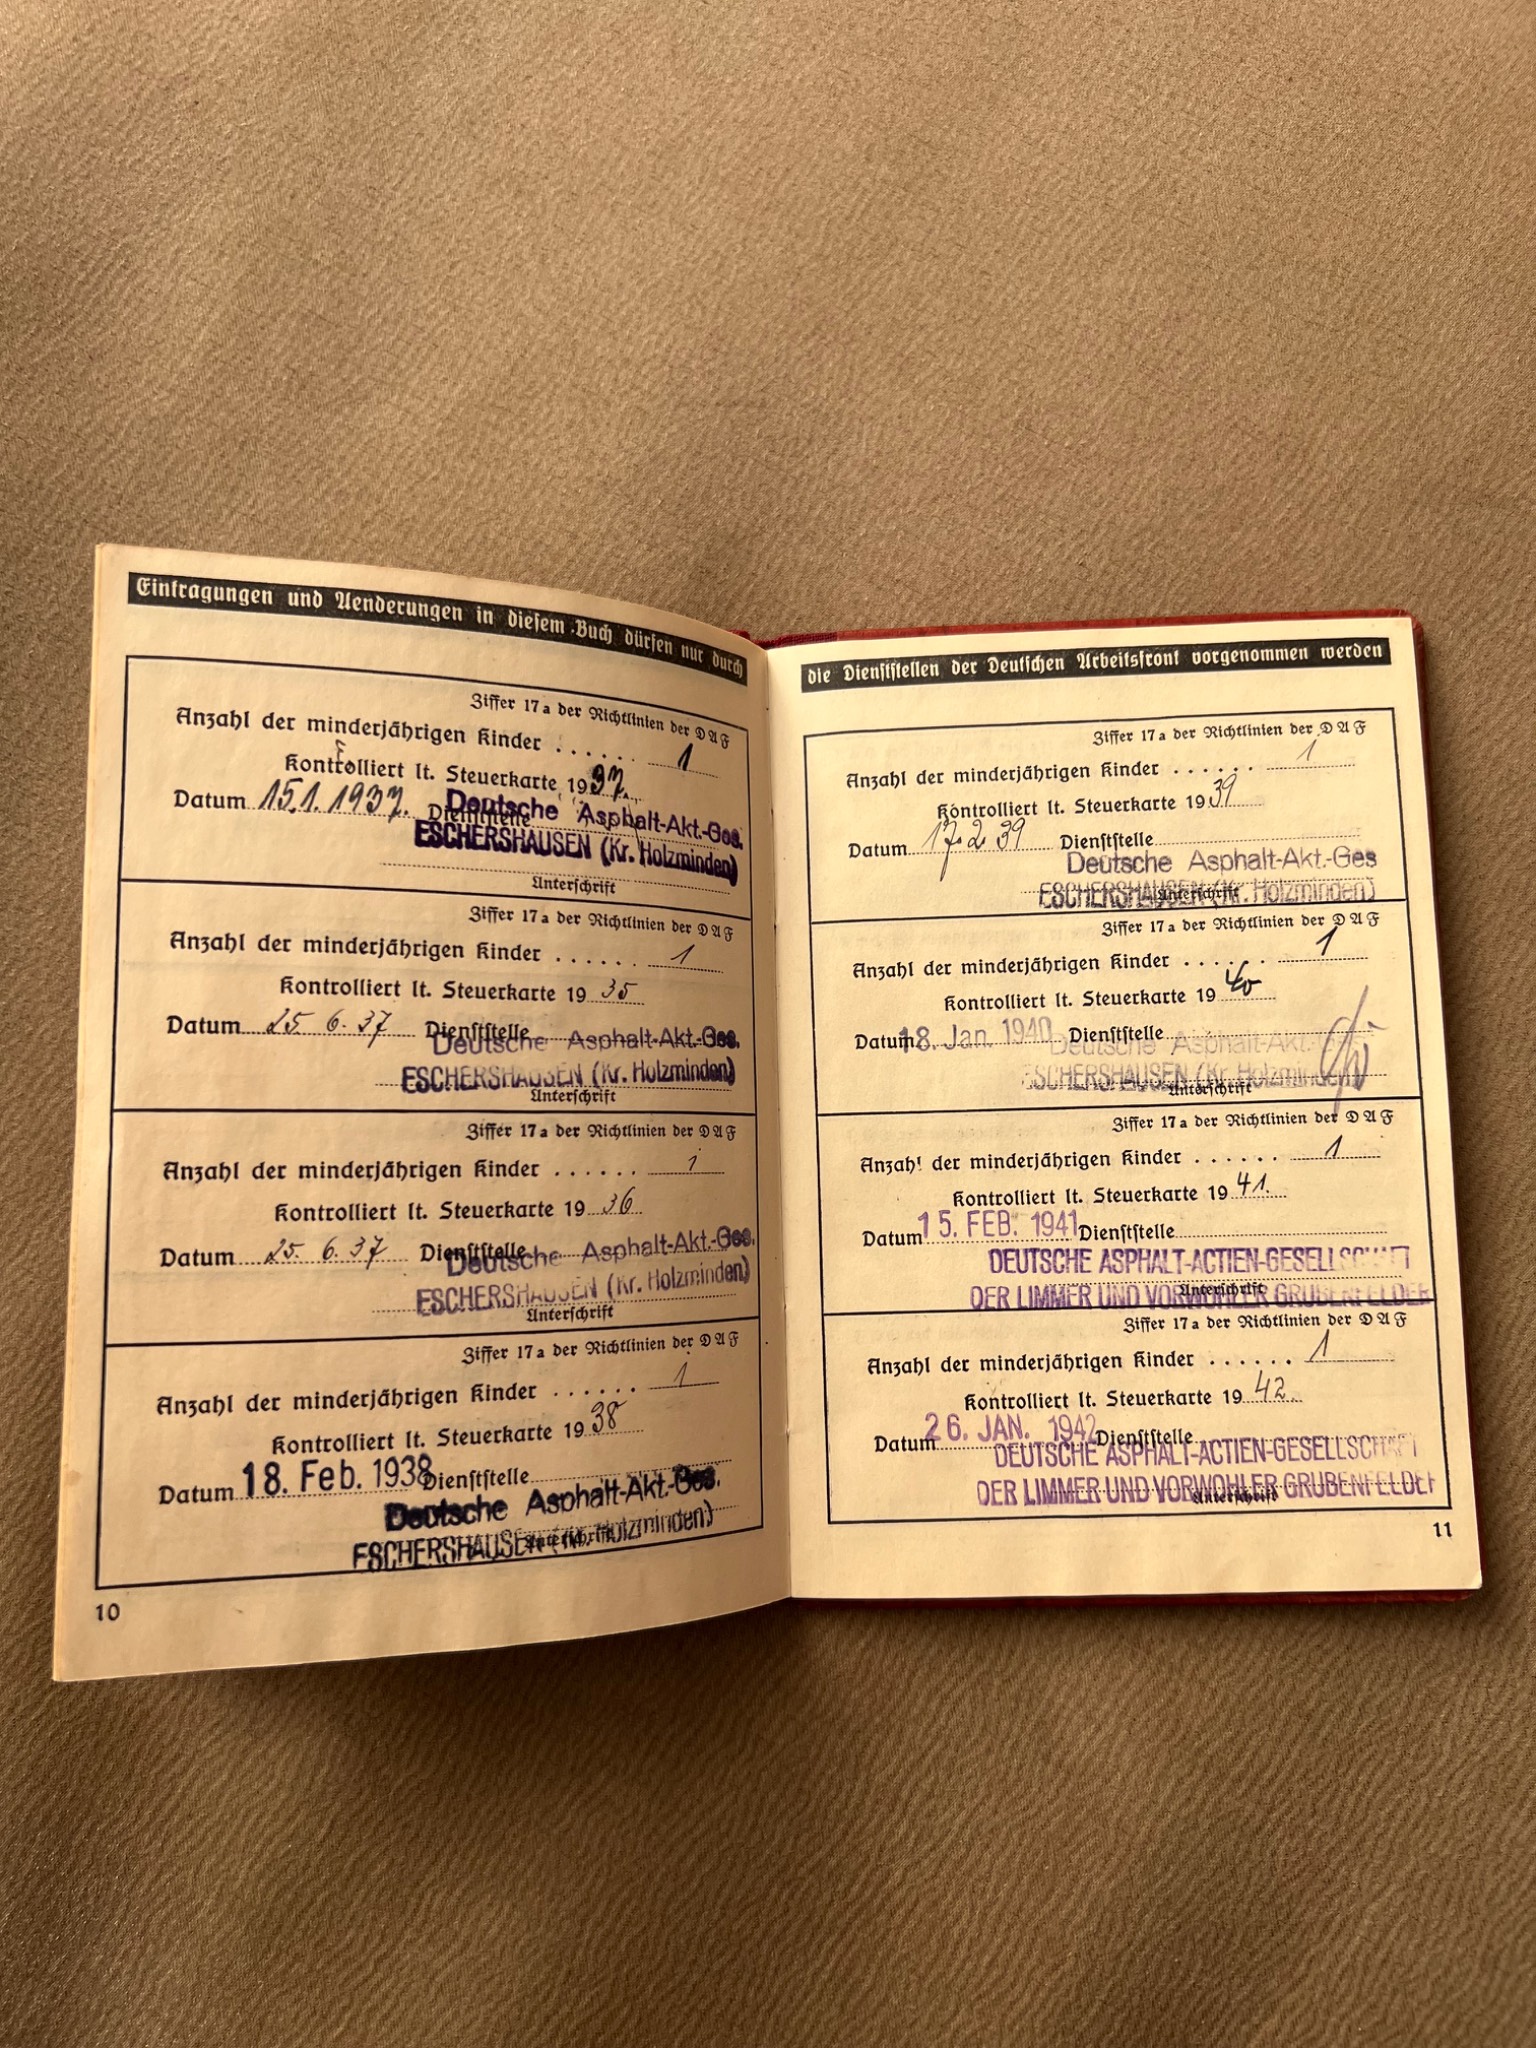 Eintragungen und Aenderungen in diesem Buch dürfen nur durch
Ziffer 17a der Richtlinien der DAF
Anzahl der minderjährigen Kinder ...... 1
Kontrolliert lt. Steuerkarte 1937.
Datum 15.1.1937. Dienststelle
Deutsche Asphalt-Akt.-Ges.
ESCHERSHAUSEN (Kr. Holzminden)
Unterschrift
Ziffer 17a der Richtlinien der DAF
Anzahl der minderjährigen Kinder ...... 1
Kontrolliert lt. Steuerkarte 1935
Datum 25. 6. 37 Dienststelle
Deutsche Asphalt-Akt.-Ges.
ESCHERSHAUSEN (Kr. Holzminden)
Unterschrift
Ziffer 17a der Richtlinien der DAF
Anzahl der minderjährigen Kinder ...... 1
Kontrolliert lt. Steuerkarte 1936
Datum 25. 6. 37 Dienststelle
Deutsche Asphalt-Akt.-Ges.
ESCHERSHAUSEN (Kr. Holzminden)
Unterschrift
Ziffer 17a der Richtlinien der DAF
Anzahl der minderjährigen Kinder ...... 1
Kontrolliert lt. Steuerkarte 1938
Datum 18. Feb. 1938 Dienststelle
Deutsche Asphalt-Akt.-Ges.
ESCHERSHAUSEN (Kr. Holzminden)
Unterschrift
10
die Dienststellen der Deutschen Arbeitsfront vorgenommen werden
Ziffer 17a der Richtlinien der DAF
Anzahl der minderjährigen Kinder ...... 1
Kontrolliert lt. Steuerkarte 1939
Datum 17.2.39 Dienststelle
Deutsche Asphalt-Akt.-Ges
ESCHERSHAUSEN (Kr. Holzminden)
Unterschrift
Ziffer 17a der Richtlinien der DAF
Anzahl der minderjährigen Kinder ...... 1
Kontrolliert lt. Steuerkarte 1940
Datum 18. Jan. 1940 Dienststelle
Deutsche Asphalt-Akt.-Ges
ESCHERSHAUSEN (Kr. Holzminden)
Unterschrift
Ziffer 17a der Richtlinien der DAF
Anzahl der minderjährigen Kinder ...... 1
Kontrolliert lt. Steuerkarte 1941.
Datum 15. FEB. 1941 Dienststelle
DEUTSCHE ASPHALT-ACTIEN-GESELLSCHAFT
DER LIMMER UND VORWOHLER GRUBENFELDER
Unterschrift
Ziffer 17a der Richtlinien der DAF
Anzahl der minderjährigen Kinder ...... 1
Kontrolliert lt. Steuerkarte 1942.
Datum 26. JAN. 1942 Dienststelle
DEUTSCHE ASPHALT-ACTIEN-GESELLSCHAFT
DER LIMMER UND VORWOHLER GRUBENFELDER
Unterschrift
11